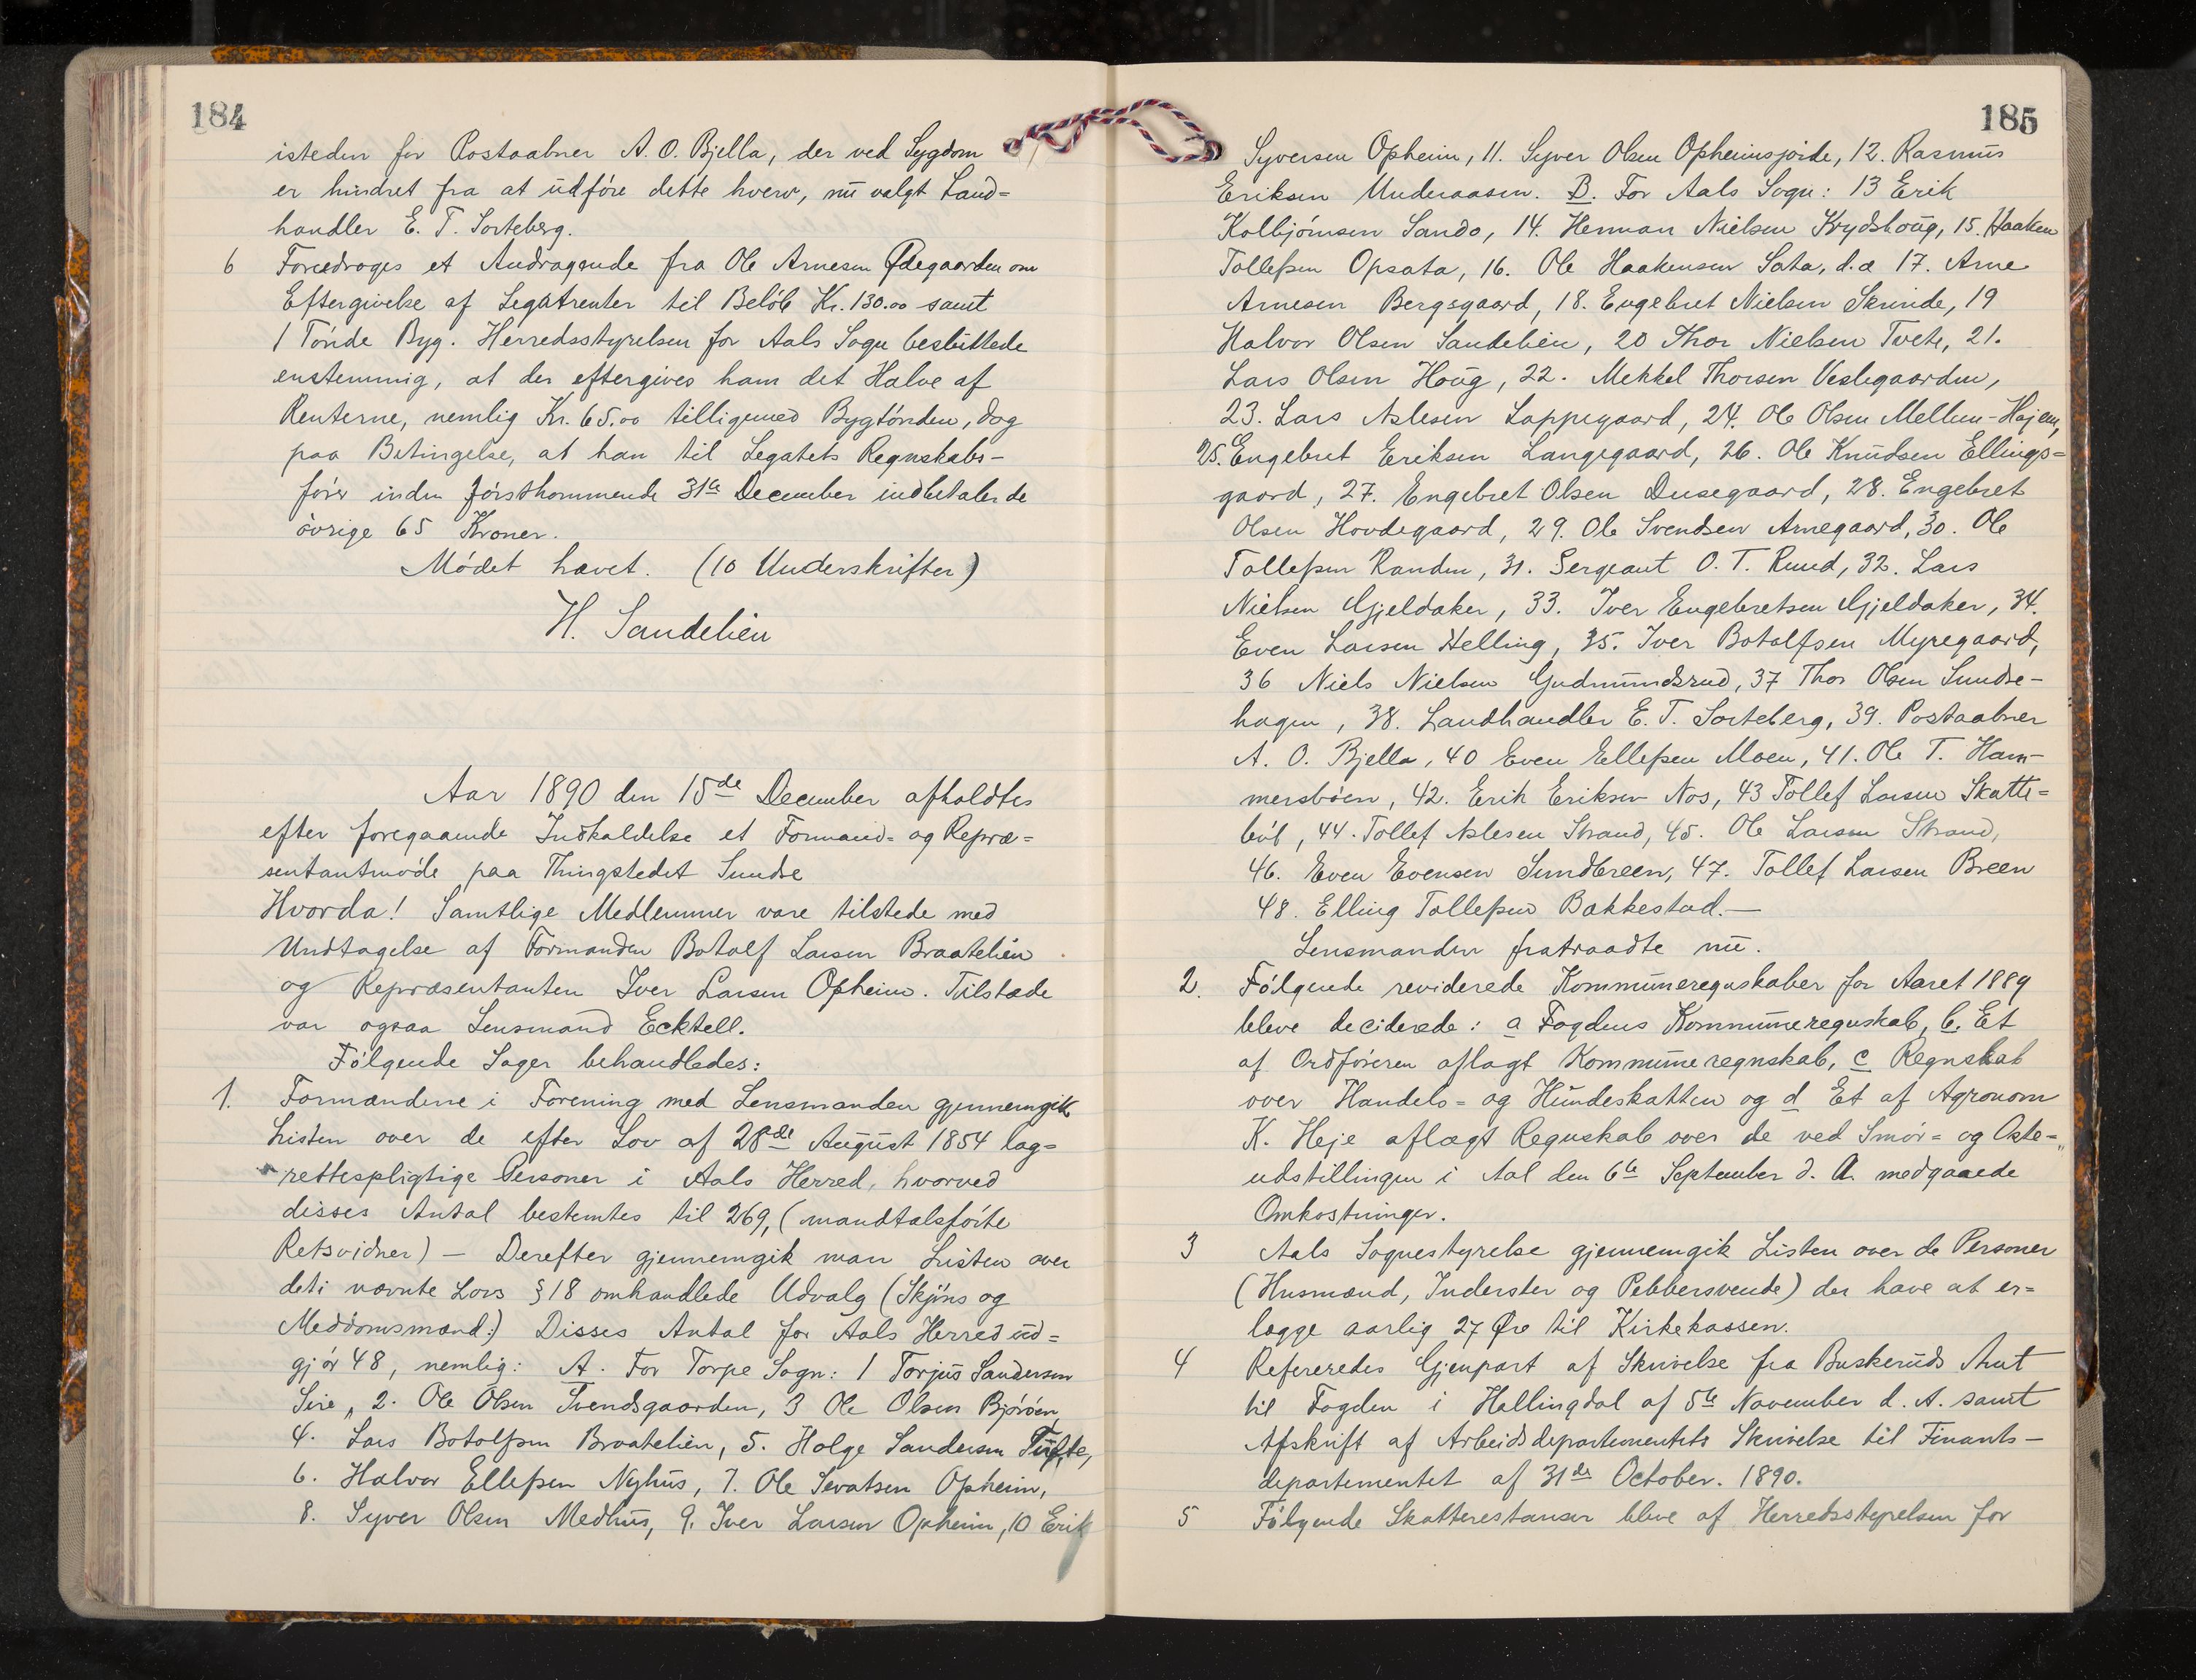 184
isteden for Postaabner A. O. Bjella, der ved Sygdom
er hindret fra at udføre dette hverv, nu valgt Land=
handler E. T. Sorteberg.
6 Foredroges et Andragende fra Ole Arnesen Ødegaarden om
Eftergivelse af Legatrenter til Beløb Kr. 130.00 samt
1 Tønde Byg. Herredsstyrelsen for Aals Sogn besluttede
enstemmig, at der eftergives ham det Halve af
Renterne, nemlig Kr. 65.00 tilligemed Bygtønden, dog
paa Betingelse, at han til Legatets Regnskabs-
fører inden førstkommende 31te December indbetaler de
øvrige 65 Kroner.
Mødet hævet. (10 Underskrifter)
H. Sandelien
Aar 1890 den 15de December afholdtes
efter foregaaende Indkaldelse et Formand= og Repræ=
sentantmøde paa Thingstedet Sundre
Hvorda! Samtlige Medlemmer vare tilstede med
Undtagelse af Formanden Botolf Larsen Braatelien
og Repræsentanten Iver Larsen Opheim. Tilstæde
var ogsaa Lensmand Ecktell.
Følgende Sager behandledes:
1. Formændene i Forening med Lensmanden gjennemgik
Listen over de efter Lov af 28de August 1854 lag=
rettespligtige Personer i Aals Herred, hvorved
disses Antal bestemtes til 269, (mandtalsførte
Retsvidner) — Derefter gjennemgik man Listen over
det i nævnte Lovs § 18 omhandlede Udvalg (Skjøns og
Meddomsmænd.) Disses Antal for Aals Herred ud=
gjør 48, nemlig: A. For Torpe Sogn: 1 Torjus Sandersen
Sire, 2. Ole Olsen Svendsgaarden, 3 Ole Olsen Bjørøen,
4. Lars Botolfsen Braatelien, 5. Holge Sandersen Tufte,
6. Halvor Ellefsen Nyhus, 7. Ole Sevatsen Opheim,
8. Syver Olsen Medhus, 9. Iver Larsen Opheim, 10 Erik
185
Syversen Opheim, 11. Syver Olsen Opheimsjorde, 12. Rasmus
Eriksen Underaasen. B. For Aals Sogn: 13 Erik
Kolbjørnsen Sando, 14. Herman Nielsen Krydshoug, 15. Haaken
Tollefsen Opsata, 16. Ole Haakensen Sata, d.æ 17. Arne
Arnesen Bergsgaard, 18. Engebret Nielsen Skrinde, 19
Halvor Olsen Sandelien, 20 Thor Nielsen Tvete, 21.
Lars Olsen Houg, 22. Mekkel Thorsen Veslegaarden,
23. Lars Aslesen Lappegaard, 24. Ole Olsen Mellum-Hajem,
25. Engebret Eriksen Langegaard, 26. Ole Knudsen Ellings=
gaard, 27. Engebret Olsen Dusegaard, 28. Engebret
Olsen Hovdegaard, 29. Ole Svendsen Arnegaard, 30. Ole
Tollefsen Randen, 31. Sergeant O. T. Ruud, 32. Lars
Nielsen Gjeldaker, 33. Iver Engebretsen Gjeldaker, 34.
Even Larsen Helling, 35. Iver Botolfsen Myregaard,
36 Niels Nielsen Gudmundsrud, 37 Thor Olsen Sundre-
hagen, 38. Landhandler E. T. Sorteberg, 39. Postaabner
A. O. Bjella, 40 Even Ellefsen Moen, 41. Ole T. Ham-
mersbøen, 42. Erik Eriksen Nos, 43 Tollef Larsen Skatte=
bøl, 44. Tollef Aslesen Strand, 45. Ole Larsen Strand,
46. Even Evensen Sundbreen, 47. Tollef Larsen Breen
48. Elling Tollefsen Bakkestad.—
Lensmanden fratraadte nu.
2. Følgende reviderede Kommuneregnskaber for Aaret 1889
bleve deciderede: a Fogdens Kommuneregnskab, b. Et
af Ordføreren aflagt Kommuneregnskab, c Regnskab
over Handels= og Hundeskatten og d Et af Agronom
K. Heje aflagt Regnskab over de ved Smør= og Oste=
udstillingen i Aal den 6te September d. A. medgaaede
Omkostninger.
3 Aals Sognestyrelse gjennemgik Listen over de Personer
(Husmænd, Inderster og Pebbersvende) der have at er=
lægge aarlig 27 Øre til Kirkekassen.
4 Refereredes Gjenpart af Skrivelse fra Buskeruds Amt
til Fogden i Hallingdal af 5te November d. A. samt
Afskrift af Arbeidsdepartementets Skrivelse til Finants-
departementet af 31de October. 1890.
5 Følgende Skatterestanser bleve af Herredsstyrelsen for